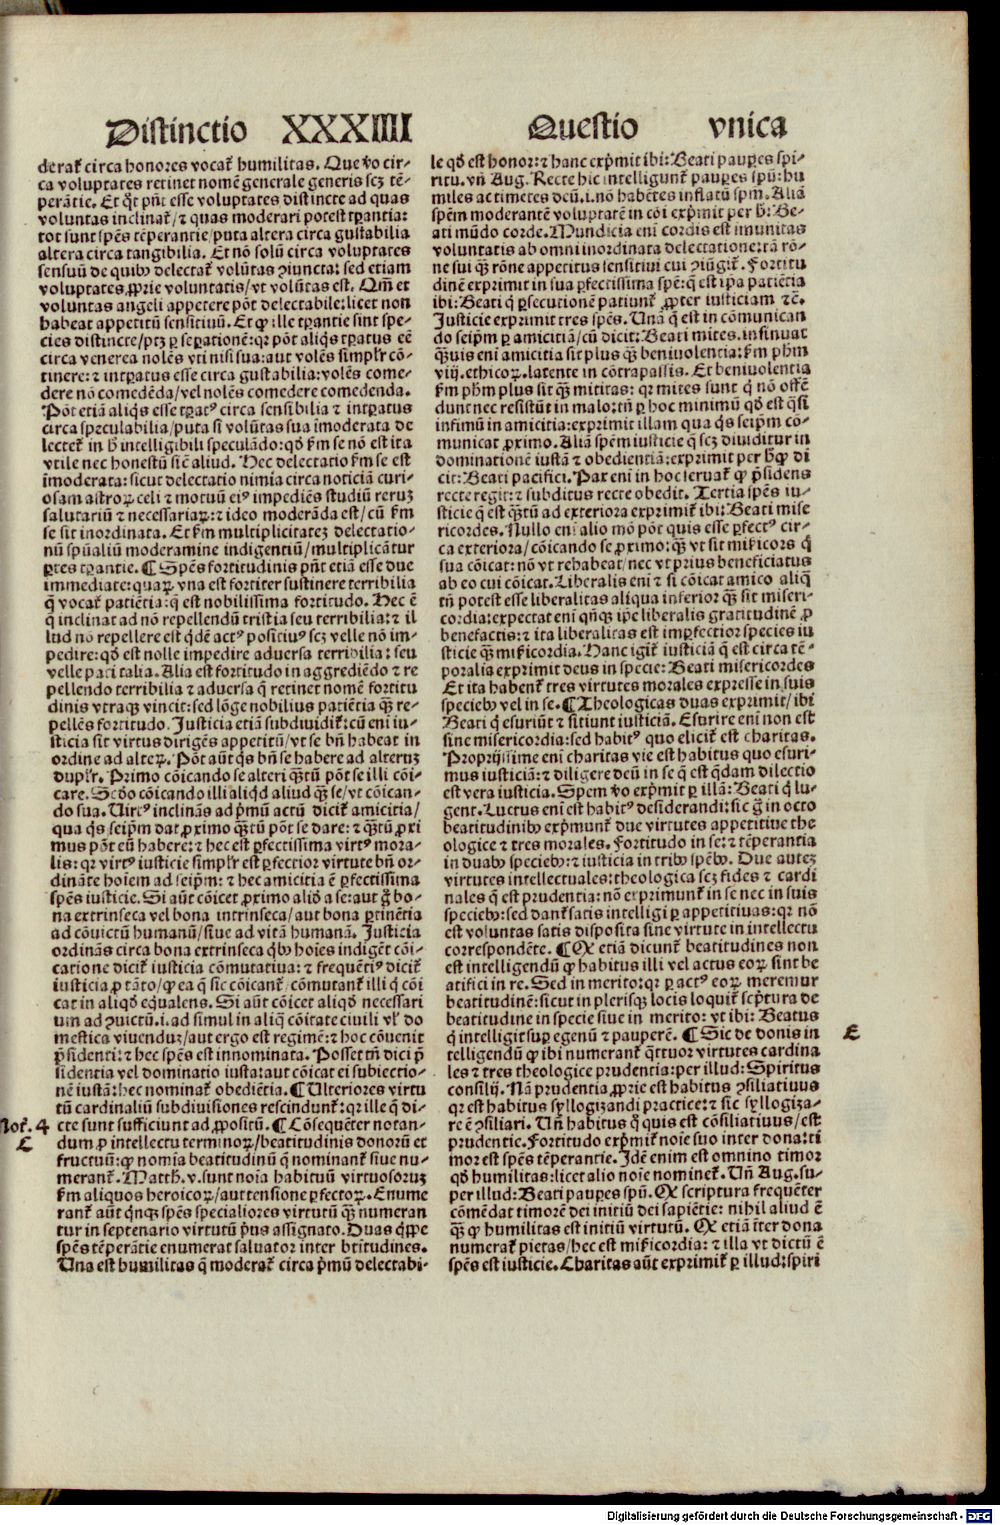 Distinctio XXXIIII Questio vnica
derat̃ circa honores vocat̃ humilitas. Que v̓o cir⸗
ca voluptates retinet nomẽ generale generis scz tẽ⸗
perãtie. Et q̃ pñt esse voluptates distincte ad quas
voluntas inclinat̃/ ⁊ quas moderari potest tp̃antia:
tot sunt spẽs tẽperantie/ puta altera circa gustabilia
altera circa tangibilia. Et nõ solũ circa voluptates
sensuũ de quibꝰ delectat̃ volũtas ꝯiuncta: sed etiam
voluptates ꝓprie voluntatis/ vt volũtas est. Qm̃ et
voluntas angeli appetere põt delectabile: licet non
habeat appetitũ sensitiuũ. Et ꝙ ille tp̃antie sint spe⸗
cies distincte/ ptꝫ ꝑ seꝑationẽ: qꝛ põt aliq̃s tp̃atus eẽ
circa venerea nolẽs vti nisi sua: aut volẽs simplr̃ cõ⸗
tinere: ⁊ intp̃atus esse circa gustabilia: volẽs come⸗
dere nõ comedẽda/ vel nolẽs comedere comedenda.
Põt etiã aliq̃s esse tp̃atꝰ circa sensibilia ⁊ intp̃atus
circa speculabilia/ puta si volũtas sua imoderata de
lectet̃ in h̓ intelligibili speculãdo: qd̓ ẜm se nõ est ita
vtile nec honestũ sic̃ aliud. Hec delectatio ẜm se est
ĩmoderata: sicut delectatio nimia circa noticiã curi⸗
osam astroꝝ celi ⁊ motuũ eiꝰ impediẽs studiũ rerum
salutariũ ⁊ necessariaꝝ: ⁊ ideo moderãda est/ cũ ẜm
se sit inordinata. Et ẜm multiplicitatez delectatio⸗
nũ spũaliũ moderamine indigentiũ/ multiplicãtur
ꝑtes tp̃antie. ¶ Spẽs fortitudinis pñt etiã esse due
immediate: quaꝝ vna est fortiter sustinere terribilia
q̃ vocat̃ patiẽtia: q̃ est nobilissima fortitudo. Hec ẽ
q̃ inclinat ad nõ repellendũ tristia seu terribilia: ⁊ il
lud nõ repellere est q̃dẽ actꝰ positiuꝰ scz velle nõ im⸗
pedire: qd̓ est nolle impedire aduersa terribilia: seu
velle pati talia. Alia est fortitudo in aggrediẽdo ⁊ re
pellendo terribilia ⁊ aduersa q̃ retinet nomẽ fortitu
dinis vtraqꝫ vincit: sed lõge nobilius patiẽtia q̃ȝ re⸗
pellẽs fortitudo. Justicia etiã subdiuidit̃: cũ eni iu⸗
sticia sit virtus dirigẽs appetitũ/ vt se bñ habeat in
ordine ad alteꝝ. Põt aũt q̃s bñ se habere ad alterum
duplr̃. Primo cõicando se alteri q̃ȝtũ põt se illi cõi⸗
care. Scd̓o cõicando illi aliqd̓ aliud q̃ȝ se/ vt cõican⸗
do sua. Uirtꝰ inclinãs ad p̃mũ actũ dicit̃ amicitia/
qua q̃s seip̃m dat ꝓximo q̃ȝtũ põt se dare: ⁊ q̃ȝtũ ꝓxi
mus põt eũ habere: ⁊ hec est ꝑfectissima virtꝰ mora⸗
lis: qꝛ virtꝰ iusticie simplr̃ est ꝑfectior virtute bñ or⸗
dinãte hoĩem ad seip̃m: ⁊ hec amicitia ẽ ꝑfectissima
spẽs iusticie. Si aũt cõicet ꝓximo alid̓ a se: aut g̃ bo⸗
na extrinseca vel bona intrinseca/ aut bona ꝑtinẽtia
ad cõuictũ humanũ/ siue ad vitã humanã. Justicia
ordinãs circa bona extrinseca qb̓ꝰ hoĩes indigẽt cõi⸗
catione dicit̃ iusticia cõmutatiua: ⁊ frequẽtiꝰ dicit̃
iusticia ꝓ tãto/ ꝙ ea q̃ sic cõicant̃/ cõmutant̃ illi q̃ cõi
cat in aliqd̓ equalens. Si aũt cõicet aliqd̓ necessari
um ad ꝯuictũ. i. ad simul in aliq̃ cõitate ciuili vl̓ do
mestica viuenduz/ aut ergo est regimẽ: ⁊ hoc cõuenit
p̃sidenti: ⁊ hec spẽs est innominata. Posset tñ dici p̃
sidentia vel dominatio iusta: aut cõicat ei subiectio⸗
nẽ iustã: hec nominat̃ obediẽtia. ¶ Ulteriores virtu
tũ cardinaliũ subdiuisiones rescindunt̃: qꝛ ille q̃ di⸗
cte sunt sufficiunt ad ꝓpositũ. ¶ Cõsequẽter notan⸗
dum ꝓ intellectu terminoꝝ/ beatitudinis donorũ et
fructuũ: ꝙ nomĩa beatitudinũ q̃ nominant̃ siue nu⸗
merant̃. Matth. v. sunt noĩa habituũ virtuosorum
ẜm aliquos heroicoꝝ/ aut tensione ꝑfectoꝝ. Enume
rant̃ aũt q̃nqꝫ spẽs specialiores virtutũ q̃ȝ numeran
tur in septenario virtutũ p̃us assignato. Duas q̃ppe
spẽs tẽperãtie enumerat saluator inter btitudines.
Una est humilitas q̃ moderat̃ circa p̃mũ delectabi⸗
Not̃. 4
E
le qd̓ est honor: ⁊ hanc exp̃mit ibi: Beati pauꝑes spi⸗
ritu. vñ Aug. Recte hic intelligunt̃ pauꝑes spũ: hu
miles ac timetes deũ. i. nõ habẽtes inflatũ spm̃. Aliã
spẽm moderantẽ voluptatẽ in cõi exp̃mit per h̓: Be⸗
ati mũdo corde. Mundicia eni cordis est imunitas
voluntatis ab omni inordinata delectatione: tã rõ⸗
ne sui q̃ȝ rõne appetitus sensitiui cui ꝯiũgit̃. Fortitu
dinẽ exprimit in sua ꝑfectissima spẽ: q̃ est ip̃a patiẽtia
ibi: Beati q̃ ꝑsecutionẽ patiunt̃ ꝓpter iusticiam ⁊c̃.
Justicie exprimit tres spẽs. Unã q̃ est in cõmunican
do seip̃m ꝑ amicitiã/ cũ dicit: Beati mites. insinuat
q̃ȝuis eni amicitia sit plus q̃ȝ beniuolentia: ẜm phm̃
viij. ethicoꝝ. latente in cõtrapassis. Et beniuolentia
ẜm phm̃ plus sit q̃ȝ mititas: qꝛ mites sunt q̃ nõ offẽ
dunt nec resistũt in malo: tñ ꝑ hoc minimũ qd̓ est q̃si
infimũ in amicitia: exprimit illam qua q̃s seip̃m cõ⸗
municat ꝓximo. Aliã spẽm iusticie q̃ scz diuiditur in
dominationẽ iustã ⁊ obedientiã: exprimit per h̓ qd̓ di
cit: Beati pacifici. Pax eni in hoc seruat̃ ꝙ p̃sidens
recte regit: ⁊ subditus recte obedit. Tertia spẽs iu⸗
sticie q̃ est q̃ȝtũ ad exteriora exprimit̃ ibi: Beati mise
ricordes. Nullo eni alio mõ põt quis esse ꝑfectꝰ cir⸗
ca exteriora/ cõicando se ꝓximo: q̃ȝ vt sit mĩsicors q̃
sua cõicat: nõ vt rehabeat/ nec vt prius beneficiatus
ab eo cui cõicat. Liberalis eni ⁊ si cõicat amico aliq̃
tñ potest esse liberalitas aliqua inferior q̃ȝ sit miseri⸗
cordia: expectat eni qñqꝫ ip̃e liberalis gratitudinẽ ꝓ
benefactis: ⁊ ita liberalitas est imꝑfectior species iu
sticie q̃ȝ mĩsicordia. Hanc igit̃ iusticiã q̃ est circa tẽ⸗
poralia exprimit deus in specie: Beati misericordes
Et ita habent̃ tres virtutes morales expresse in suis
speciebꝰ vel in se. ¶ Theologicas duas exprimit/ ibi
Beati q̃ esuriũt ⁊ sitiunt iusticiã. Esurire eni non est
sine misericordia: sed habitꝰ quo elicit̃ est charitas.
Proprijssime eni charitas vie est habitus quo esuri⸗
mus iusticiã: ⁊ diligere deũ in se q̃ est q̃dam dilectio
est vera iusticia. Spem v̓o exp̃mit ꝑ illã: Beati q̃ lu⸗
gent. Luctus eni est habitꝰ desiderandi: sic g̃ in octo
beatitudinibꝰ exp̃munt̃ due virtutes appetitiue the
ologice ⁊ tres morales. Fortitudo in se: ⁊ tẽperantia
in duabꝰ speciebꝰ: ⁊ iusticia in tribꝰ spẽbꝰ. Due autez
virtutes intellectuales: theologica scz fides ⁊ cardi
nales q̃ est prudentia: nõ exprimunt̃ in se nec in suis
speciebꝰ: sed dant̃ satis intelligi ꝑ appetitiuas: qꝛ nõ
est voluntas satis disposita sine virtute in intellectu
correspondẽte. ¶ Qꝫ etiã dicunt̃ beatitudines non
est intelligendũ ꝙ habitus illi vel actus eoꝝ sint be
atifici in re. Sed in merito: qꝛ ꝑ actꝰ eoꝝ meremur
beatitudinẽ: sicut in plerisqꝫ locis loquit̃ scp̃tura de
beatitudine in specie siue in merito: vt ibi: Beatus
q̃ intelligit suꝑ egenũ ⁊ pauperẽ. ¶ Sic de donis in
telligendũ ꝙ ibi numerant̃ q̃ttuor virtutes cardina
les ⁊ tres theologice prudentia: per illud: Spiritus
consilij. Nã prudentia ꝓprie est habitus ꝯsiliatiuus
qꝛ est habitus syllogizandi practice: ⁊ sic syllogiza⸗
re ẽ ꝯsiliari. Uñ habitus q̃ quis est cõsiliatiuus/ est
prudentie. Fortitudo exp̃mit̃ noĩe suo inter dona: ti
mor est spẽs tẽperantie. Idẽ enim est omnino timor
qd̓ humilitas: licet alio noĩe nominet̃. Uñ Aug. su⸗
per illud: Beati pauꝑes spũ. Qꝫ scriptura frequẽter
cõmẽdat timorẽ dei initiũ dei sapiẽtie: nihil aliud ẽ
q̃ȝ ꝙ humilitas est initiũ virtutũ. Qꝫ etiã ĩter dona
numerat̃ pietas/ hec est mĩsicordia: ⁊ illa vt dictũ ẽ
spẽs est iusticie. Charitas aũt exprimit̃ ꝑ illud: spiri
E
Digitalisierung gefördert durch die Deutsche Forschungsgemeinschaft - DFG